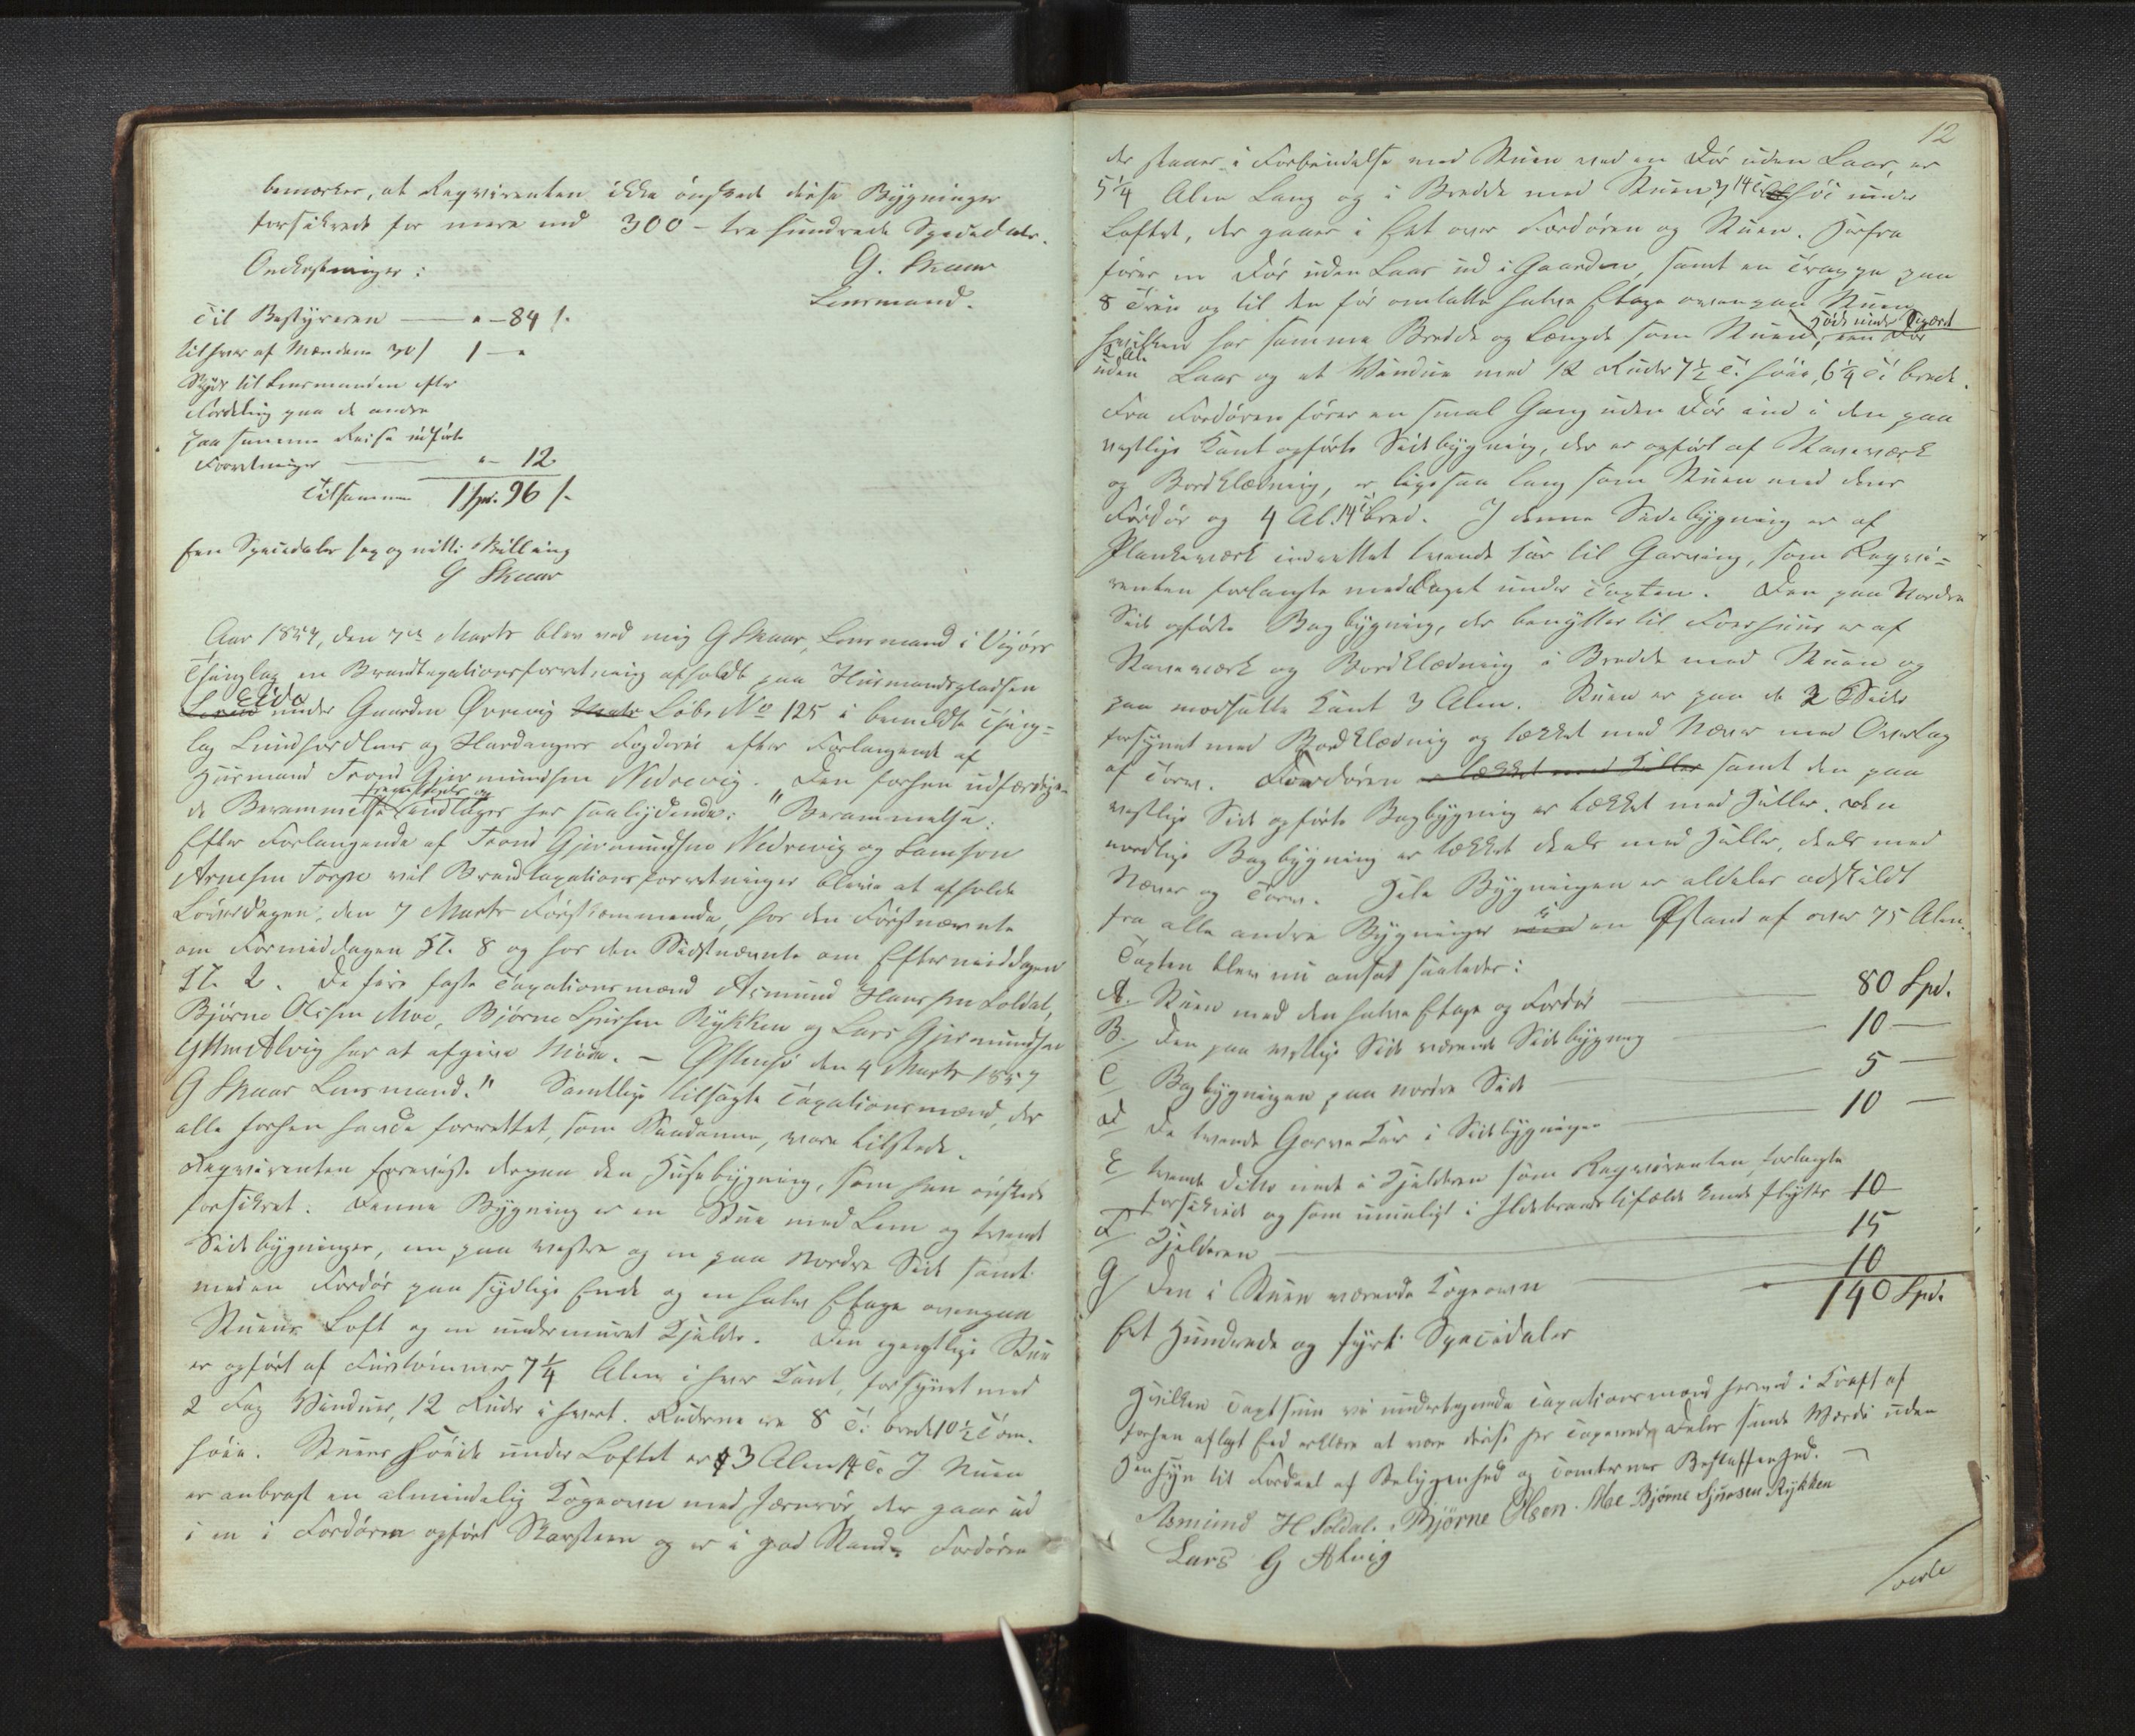 bemærkes, at Reqvirenten ikke ønskede disse Bygninger
forsikrede for mere end 300 - tre hundrede Speciedaler.
Omkostninger:
G. Skaar
Lensmand.
Til Bestyreren — " – 84 s.
til hver af Mændene 30 s 1 – "
Skyds til Lensmanden efter
Fordeling paa de andre
paa samme Reise udførte
Forretninger — " – 12
Tilsammen 1 Spd. 96 s.
Een Speciedaler sex og nitti Skilling
G Skaar
Aar 1857, den 7de Marts blev ved mig G Skaar, Lensmand i Vigørs
Thinglag en Brandtaxationsforretning afholdt paa Husmandspladsen
Eide
under Gaarden Øvrevig Matr Løbe No 125 i bemeldte Thing-
lag Sundhordlens og Hardangers Fogderi efter Forlangende af
Huusmand Trond Gjermundsen Nedrevig. Den forhen udfærdige-
fremlagdes og
de Berammelse indtages her saalydende: "Berammelse:
Efter Forlangende af Trond Gjermundsen Nedrevig og Samson
Arnesen Torpe vil Brandtaxationsforretninger blive at afholde
Løverdagen, den 7 Marts førstkommende, hos den Førstnævnte
om Formiddagen Kl. 8 og hos den Sidstnævnte om Eftermiddagen
Kl. 2. De fire faste Taxationsmænd Asmund Hansen Soldal,
Bjørne Olsen Moe, Bjørne Sjursen Rykken og Lars Gjermundsen
Alvig har at afgive Møde. – Østensø den 4 Marts 1857
G Skaar Lensmand." Samtlige tilsagte Taxationsmænd, der
alle forhen havde forrettet, som Saadanne, vare tilstede.
Reqvirenten foreviste derpaa den Husebygning, som han ønskede
forsikret. Denne Bygning er en Stue med Lem og tvende
Sidebygninger, en paa vestre og en paa Nordre Side samt
med en Fordør paa sydlige Ende og en halv Etage ovenpaa
Stuens Loft og en undermuret Kjelder. Den egentlige Stue
er opført af Furetømmer 7 1/4 Alen i hver Kant, forsynet med
2 Fag Vinduer, 12 Ruder i hvert. Ruderne er 8 T. brede 10 1/2 Tom.
høie. Stuens Høide under Loftet er 3 Alen 14 T. I Stuen
er anbragt en almindelig Kogeovn med Jernrør der gaar ud
i en i Fordøren opført Skorsteen og er i god Stand. Fordøren
12
der staaer i Forbindelse med Stuen ved en Dør uden Laas, er
5 1/4 Alen Lang og i Bredde med Stuen, 3 14 T høi under
Loftet, der gaaer i Eet over Fordøren og Stuen. Herfra
fører en Dør uden Laas ud i Gaarden, samt en Trappe paa
8 Trin og til den før omtalte halve Etage ovenpaa Stuen
Høide under
hvilken har samme Bredde og Længde som Stuen, een Dør
2 Al.
uden Laas og et Vindue med 12 Ruder 7 1/2 T. høie, 6 1/4 T. brede.
Fra Fordøren fører en smal Gang uden Dør ind i den paa
vestlige Kant opførte Sidebygning, der er opført af Staveværk
og Bordklædning, er ligesaa lang som Stuen med dens
Fordør og 4 Al. 14 T bred. I denne Sidebygning er af
Plankeværk indrettet tvende Kar til Garving, som Reqvi-
renten forlangte meddraget under Taxten. Den paa Nordre
Side opførte Bagbygning, der benyttes til Foerhuus er af
Staveværk og Bordklædning i Bredde med Stuen og
paa modsatte Kant 3 Alen. Stuen er paa de 2 Sider
forsynet med Bordklædning og tækket med Næver med Overlag
af Torv. Fordøren er tækket med Heller samt den paa
vestlige Side opførte Bagbygning er tækket med Heller. Den
nordlige Bagbygning er tækket deels med Heller, deels med
Næver og Torv. Hele Bygningen er aldeles adskildt
fra alle andre Bygninger i en Afstand af over 75 Alen.
Taxten blev nu ansat saaledes:
A. Stuen med den halve Etage og Fordør — 80 Spd.
B. Den paa vestlige Side værende Sidebygning — 10 —
C Bagbygningen paa nordre Side — 5 —
D De tvende Garve Kar i Sidebygningen — 10 —
E tvende ditto ned i Kjelderen som Reqvirenten forlangte
forsikrede og som umuligt i Ildebrandstilfælde kunde flyttes 10
F Kjelderen — 15
G Den i Stuen værende Kogeovn — 10
140 Spd.
Eet Hundrede og fyrti Speciedaler
Hvilken Taxtsum vi undertegnede Taxationsmænd herved i Kraft af
forhen aflagt Eed erklære at være disse her taxerede Deles sande Værdi uden
Hensyn til Fordeel af Beliggenhed og Tomternes Beskaffenhed. —
Asmund H. Soldal. Bjørne Olsen Moe Bjørne Sjursen Rykken
Lars G Alvig
verte